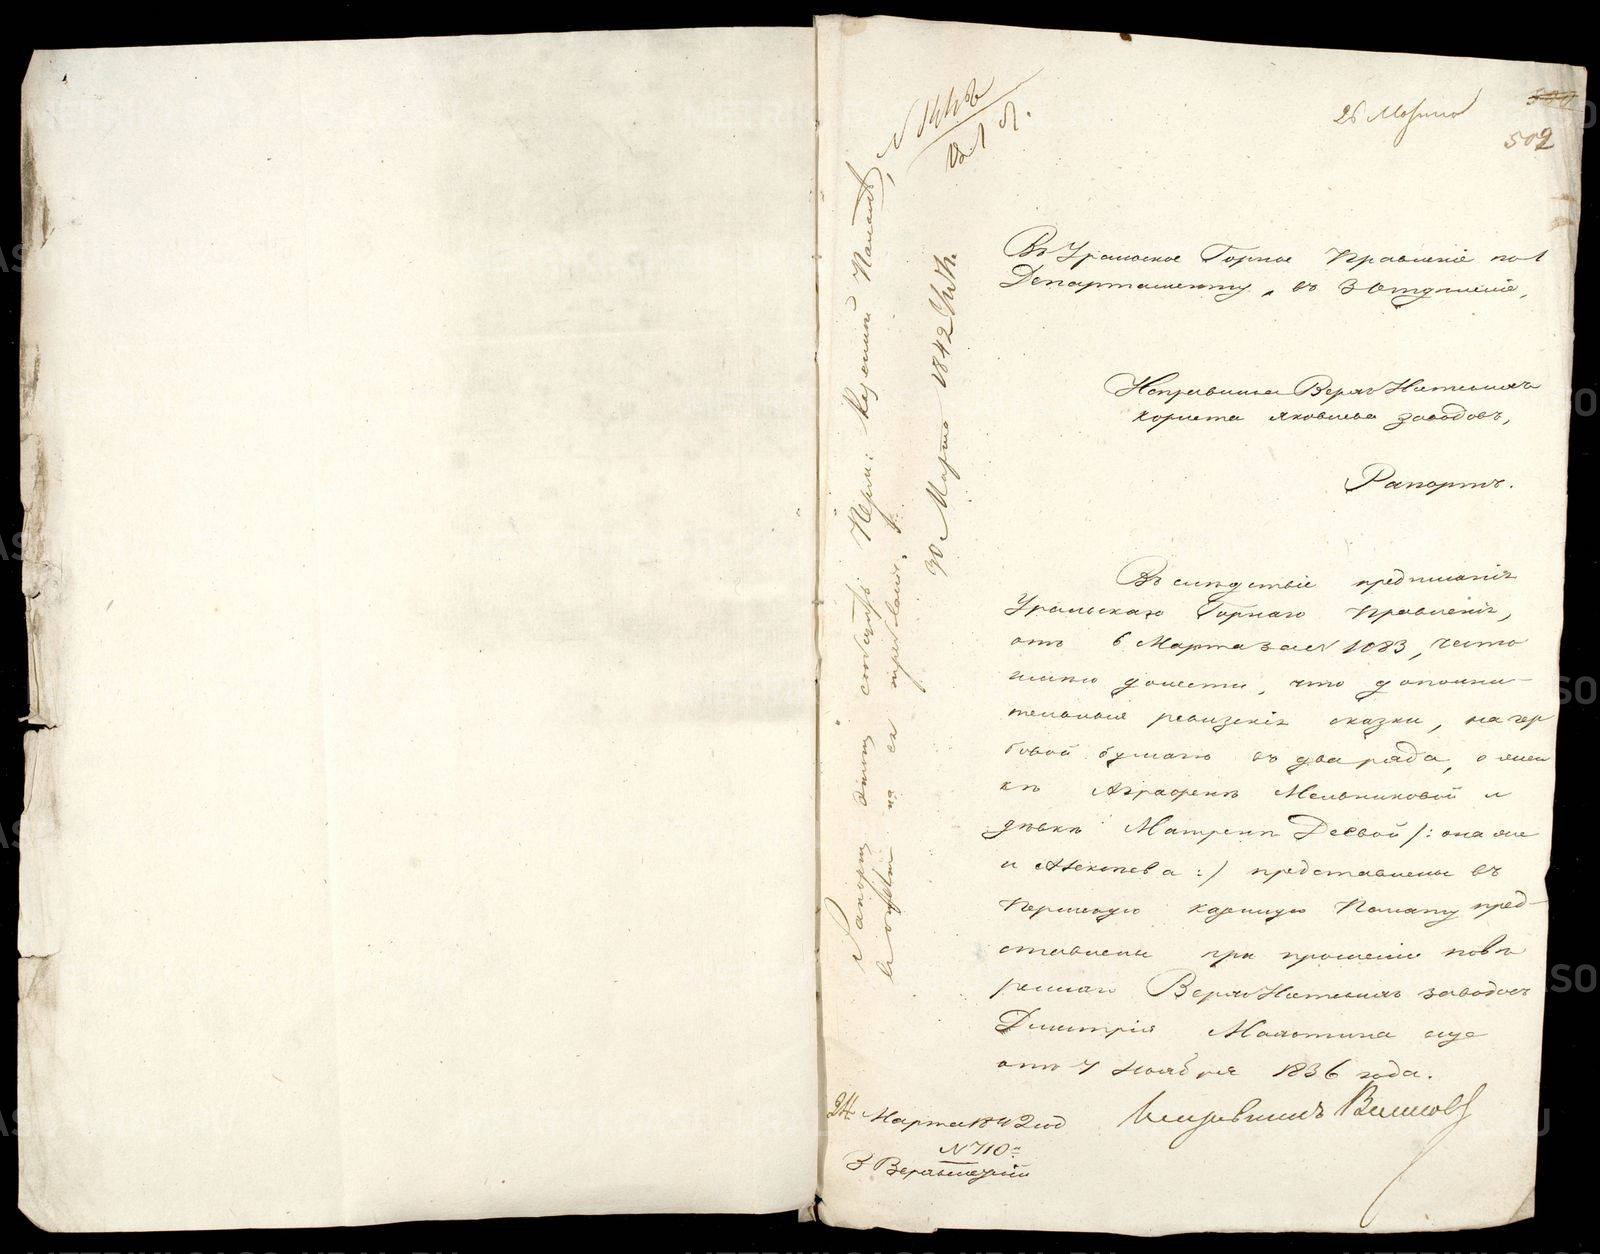 26 Марта
500
502
30 Марта 1842
Рапорт этот сообщить Перм: Казенной Палатѣ,
на ея требованіе.
Въ Уральское Горное Правленіе по 1
Департаменту, въ 3 Отдѣленіе,
Исправника ВерхъИсетскихъ
Корнета Яковлева заводовъ,
Рапортъ.
Въ слѣдствіе предписанія
Уральскаго Горнаго Правленія,
отъ 6 Марта за № 1083, честь
имѣю донести, что дополни-
тельныя ревизскія сказки, на гер
бовой бумагѣ въ два ряда, о жен
кѣ Аграфенѣ Мельниковой и
дѣвкѣ Матренѣ Деевой /: она же
и :/ представлены въ
Пермскую казенную Палату пред-
ставлены при прошеніи повѣ
реннаго ВерхъИсетскихъ заводовъ
Дмитрія Малютина еще
отъ 7 Ноября 1836 года.
Исправникъ
24 Марта 1842 год
№ 710